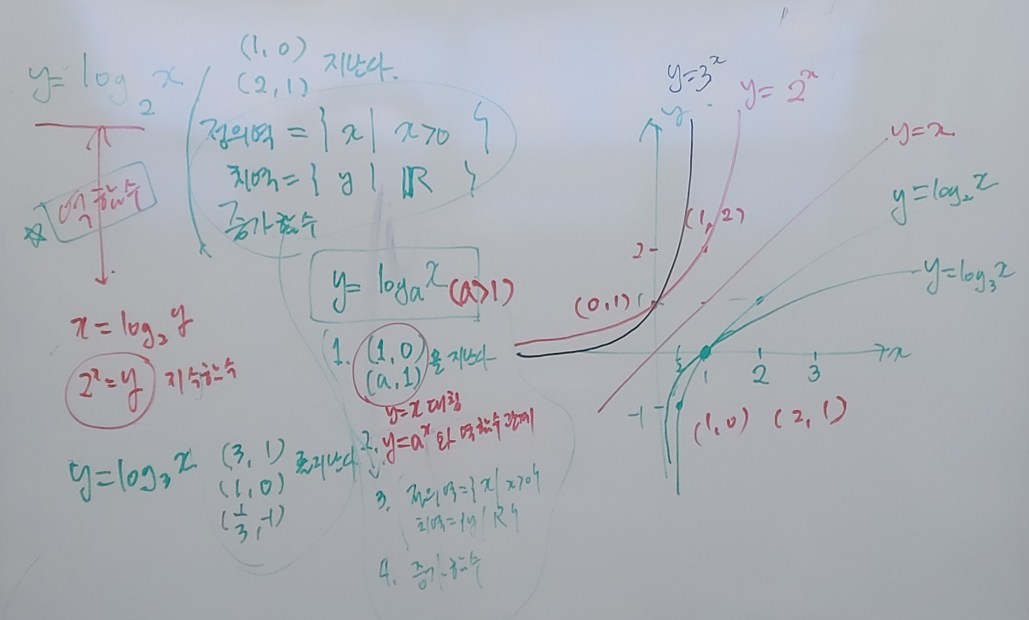 y = log₂x
(1, 0)
(2, 1) 지난다.
정의역 = { x | x>0 }
치역 = { y | ℝ }
증가함수
☆ 역함수
x = log₂y
2ˣ = y 지수함수
y = log₃x
(3, 1)
(1, 0)
(1/3, -1)
y = logₐx (a>1)
1. (1, 0)을 지난다
(a, 1)
y=x 대칭
2. y=aˣ와 역함수관계
3. 정의역={x | x>0}
치역={y | R}
4. 증가함수
y=3ˣ
y = 2ˣ
y
y=x
y = log₂x
y=log₃x
(1, 2)
2
(0, 1) 1
1/2 1 2 3 x
-1
(1, 0) (2, 1)